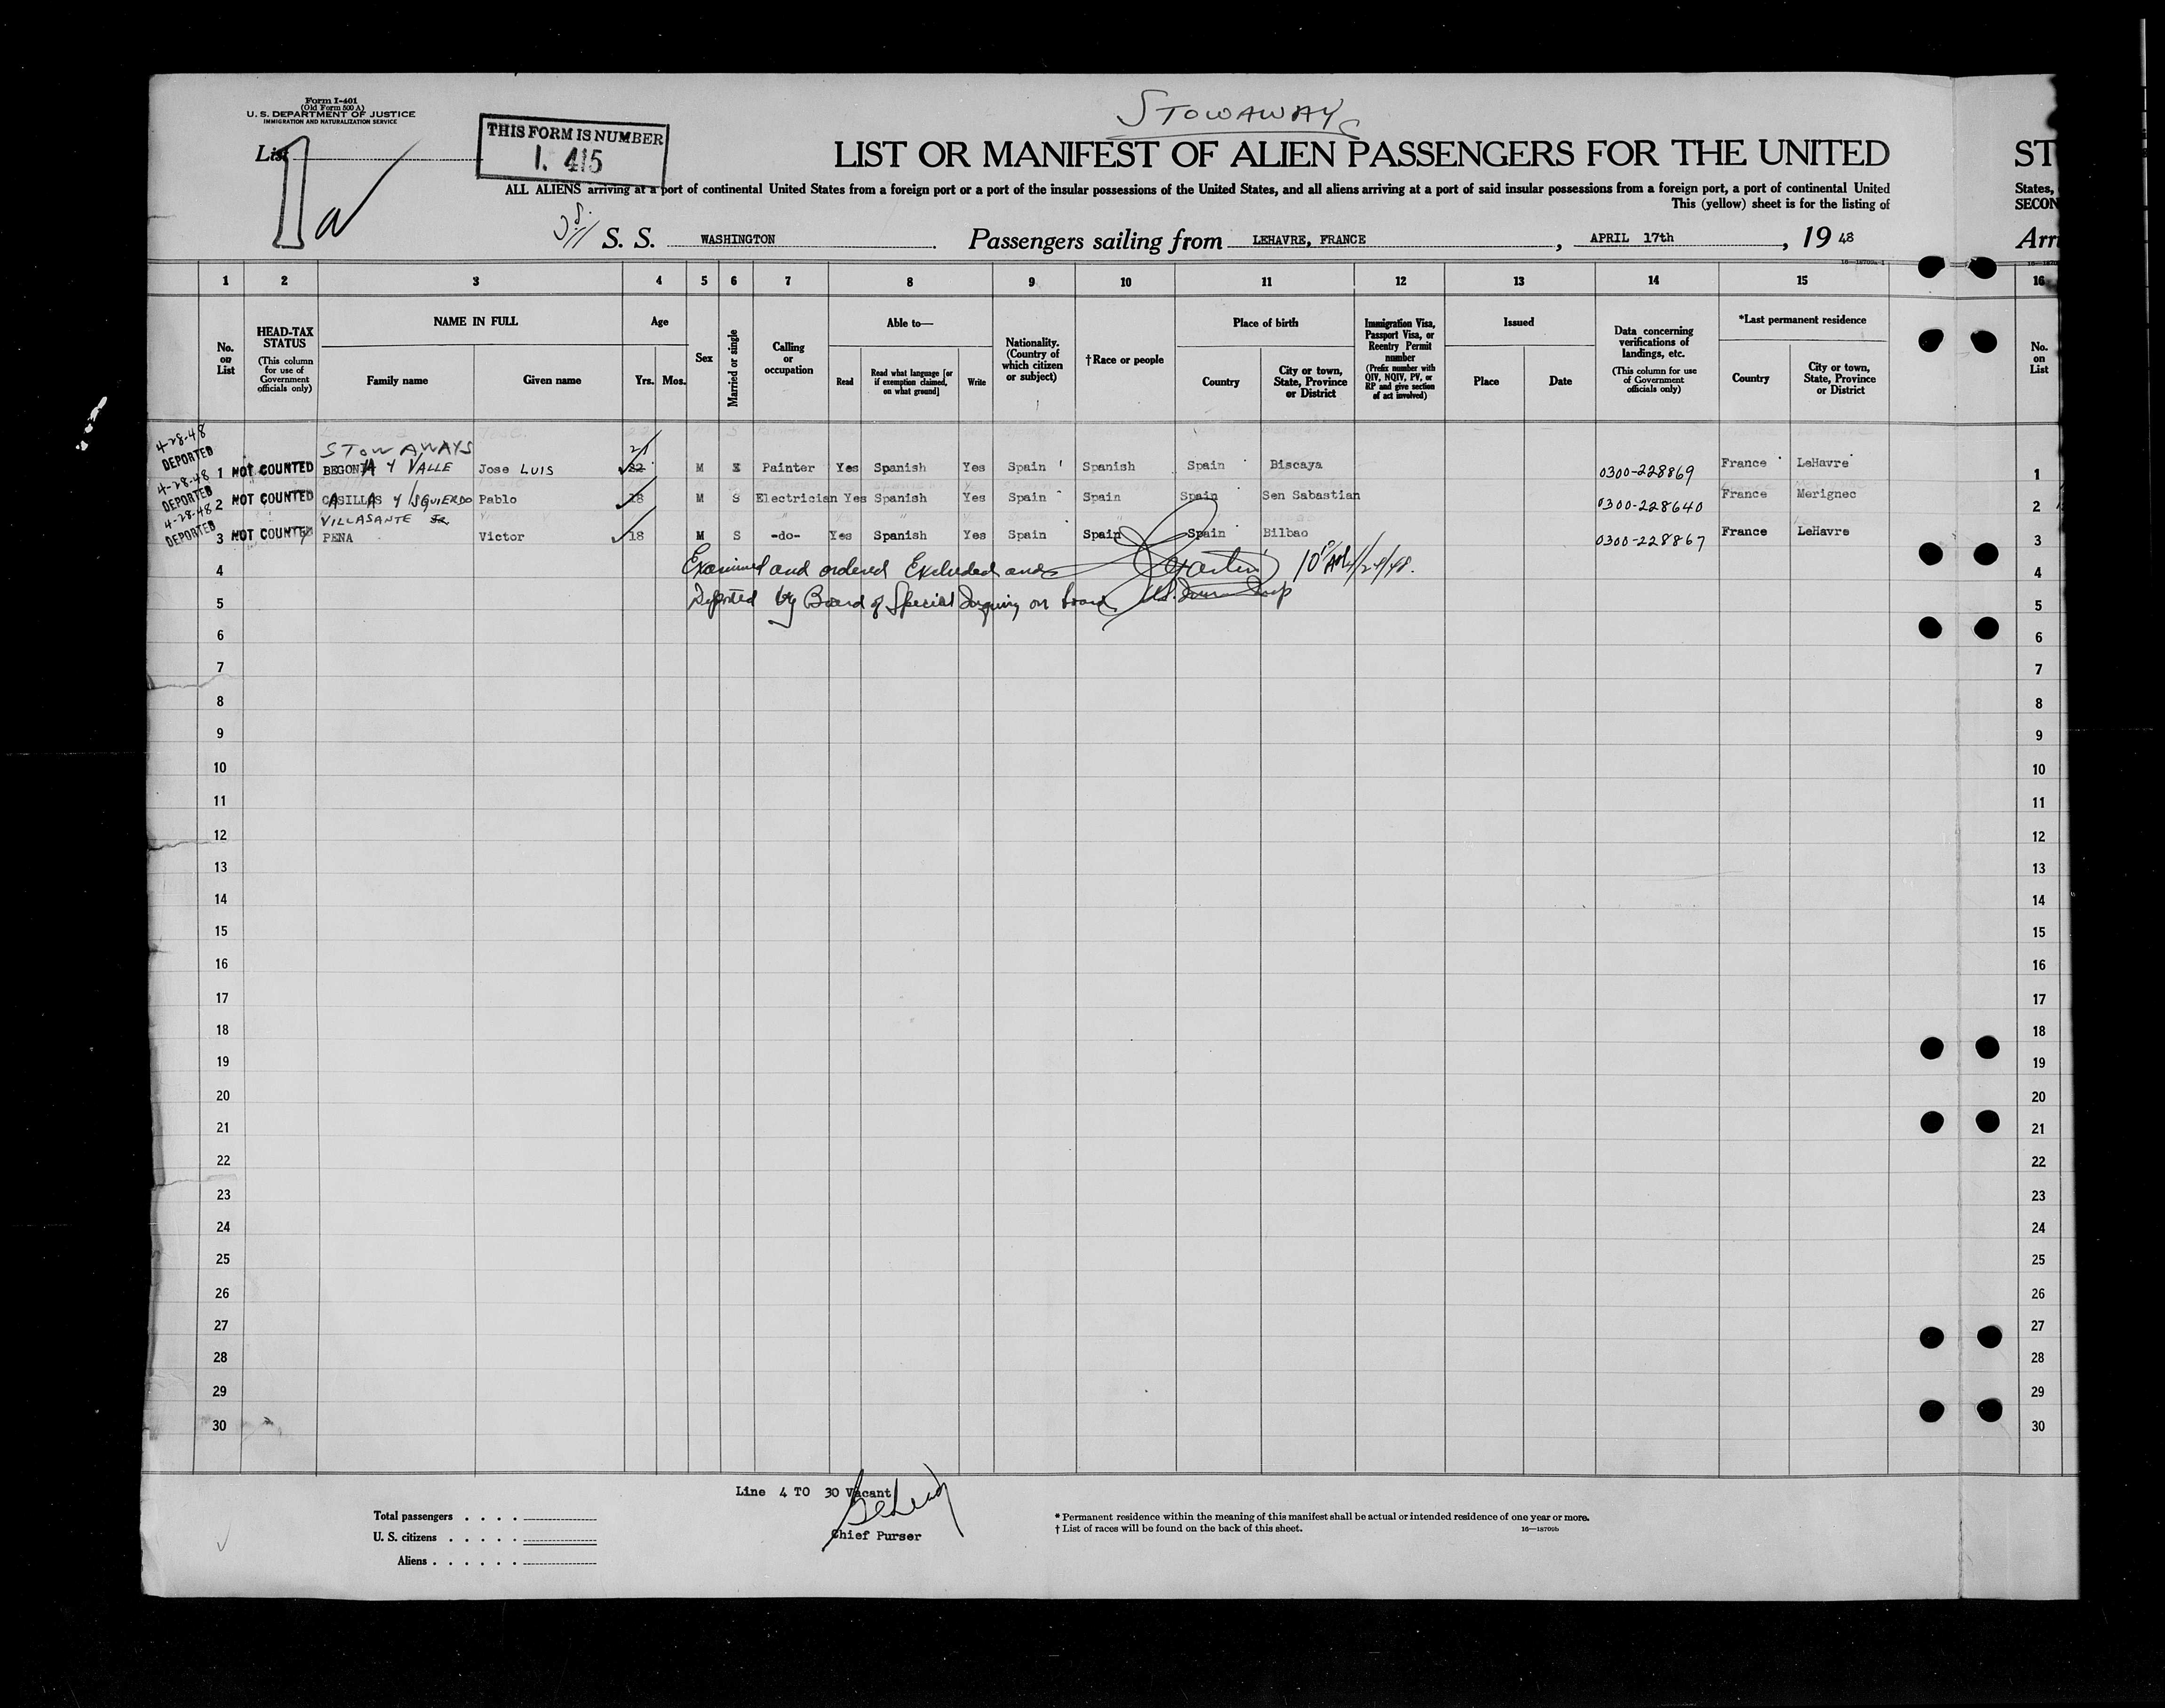 Form I-401
(Old Form 500 A)
U. S. DEPARTMENT OF JUSTICE
IMMIGRATION AND NATURALIZATION SERVICE
STOWAWAYS
List 1
THIS FORM IS NUMBER
1. 415
LIST OR MANIFEST OF ALIEN PASSENGERS FOR THE UNITED
ST
ALL ALIENS arriving at a port of continental United States from a foreign port or a port of the insular possessions of the United States, and all aliens arriving at a port of said insular possessions from a foreign port, a port of continental United
States,
This (yellow) sheet is for the listing of
SECON
S. S. WASHINGTON Passengers sailing from LEHAVRE, FRANCE , APRIL 17th , 19 48
Arri
1 2 3 4 5 6 7 8 9 10 11 12 13 14 15 16
No. on List
HEAD-TAX STATUS
(This column for use of Government officials only)
NAME IN FULL
Family name Given name
Age
Yrs. Mos.
Sex
Married or single
Calling or occupation
Able to—
Read
Read what language [or if exemption claimed, on what ground]
Write
Nationality. (Country of which citizen or subject)
†Race or people
Place of birth
Country
City or town, State, Province or District
Immigration Visa, Passport Visa, or Reentry Permit number
(Prefix number with QIV, NQIV, PV, or RP and give section of act involved)
Issued
Place Date
Data concerning verifications of landings, etc.
(This column for use of Government officials only)
*Last permanent residence
Country
City or town, State, Province or District
No. on List
STOWAWAYS
4-28-48 DEPORTED 1 NOT COUNTED BEGONIA Y VALLE Jose LUIS 21 22 M S Painter Yes Spanish Yes Spain Spanish Spain Biscaya 0300-228869 France LeHavre 1
4-28-48 DEPORTED 2 NOT COUNTED CASILLAS Y ISGUIERDO Pablo 18 M S Electrician Yes Spanish Yes Spain Spain Spain Sen Sabastian 0300-228640 France Merignec 2
VILLASANTE
4-28-48 DEPORTED 3 NOT COUNTED PENA Victor 18 M S -do- Yes Spanish Yes Spain Spain Spain Bilbao 0300-228867 France LeHavre 3
4 Examined and ordered Excluded and 4
5 Deported by Board of Special Inquiry on board 5
6 6
7 7
8 8
9 9
10 10
11 11
12 12
13 13
14 14
15 15
16 16
17 17
18 18
19 19
20 20
21 21
22 22
23 23
24 24
25 25
26 26
27 27
28 28
29 29
30 30
Line 4 TO 30 Vacant
Chief Purser
Total passengers . . . .
U. S. citizens . . . . .
Aliens . . . . . .
* Permanent residence within the meaning of this manifest shall be actual or intended residence of one year or more.
† List of races will be found on the back of this sheet.
16—18709b